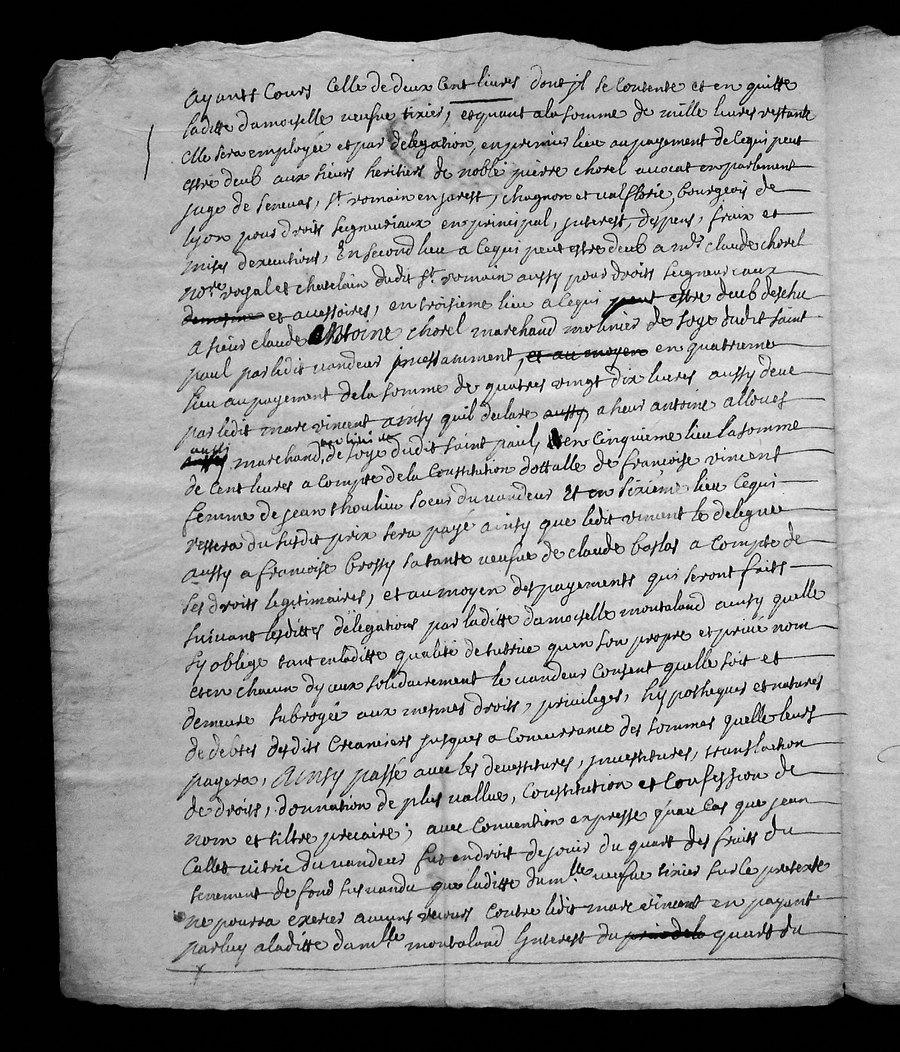 ayants Cours Celle de deux Cent livres dont il se Contente et en quitte
laditte damoiselle veufve tixier, et quant a la somme de mille livres restante
elle sera employee et par delegation, en premier lieu au payement de ce qui peut
estre deub aux sieurs heritiers de noble pierre chorel avocat en parlement
juge de senevas, st romain en jarest, chagnon et valfbrie, bourgeois de
lyon pour droits seigneuriaux en principal, interest, depens, fraix et
mises d'executions, En second lieu a Cequi peut estre deub a mre claude chorel
nore royal et chatelain dudit st romain aussy pour droits seigneuriaux
et acessoires, en troisieme lieu a Cequi peut estre deub
a sieur claude Antoine chorel marchand molinier de soye dudit saint
paul par ledit vandeur incessamment, et au moyen en quatrieme
lieu au payement de la somme de quatres vingt dix livres aussy deue
par ledit marc vincent ainsy quil declare aussy a sieur antoine alloues
aussi marchand, molinier de soye dudit saint paul, et en Cinquieme lieu la somme
de Cent livres a Compte de la Constitution dottalle de francoise vincent
femme de jean thoulieu soeur du vandeur Et en sixieme lieu Cequi
restera du susdit prix sera payé ainsy que ledit vincent le delegue
aussy a francoise brossy sa tante veufve de claude baslas a Compte de
ses droits legitimaires, et au moyen des payements qui seront faits
suivant lesdittes délegations par laditte damoiselle montaland ainsy quelle
sy oblige tant en laditte qualité de tutrice qu'en son propre et privé nom
et en chacun dyceux solidairement le vandeur Consent quelle soit et
demeure subrogée aux mesmes droits, privileges, hypotheques et natures
de debtes desdits Creanciers jusques a Concurrance des sommes quelle leurs
payera, Ainsy passé avec les devestitures, investitures, translation
de droits, donnation de plus vallue, Constitution et Confession de
nom et tiltre precaire; avec Convention expresse qu'au Cas que jean
Callet vitric du vandeur fut en droit de jouir du quart des fruits du
tenement de fond sus vandu que laditte damlle veufve tixier sur le pretexte
ne pourra exercer aucuns recours Contre ledit marc vincent en payant
par luy a laditte damlle montaland l'interest du quart du